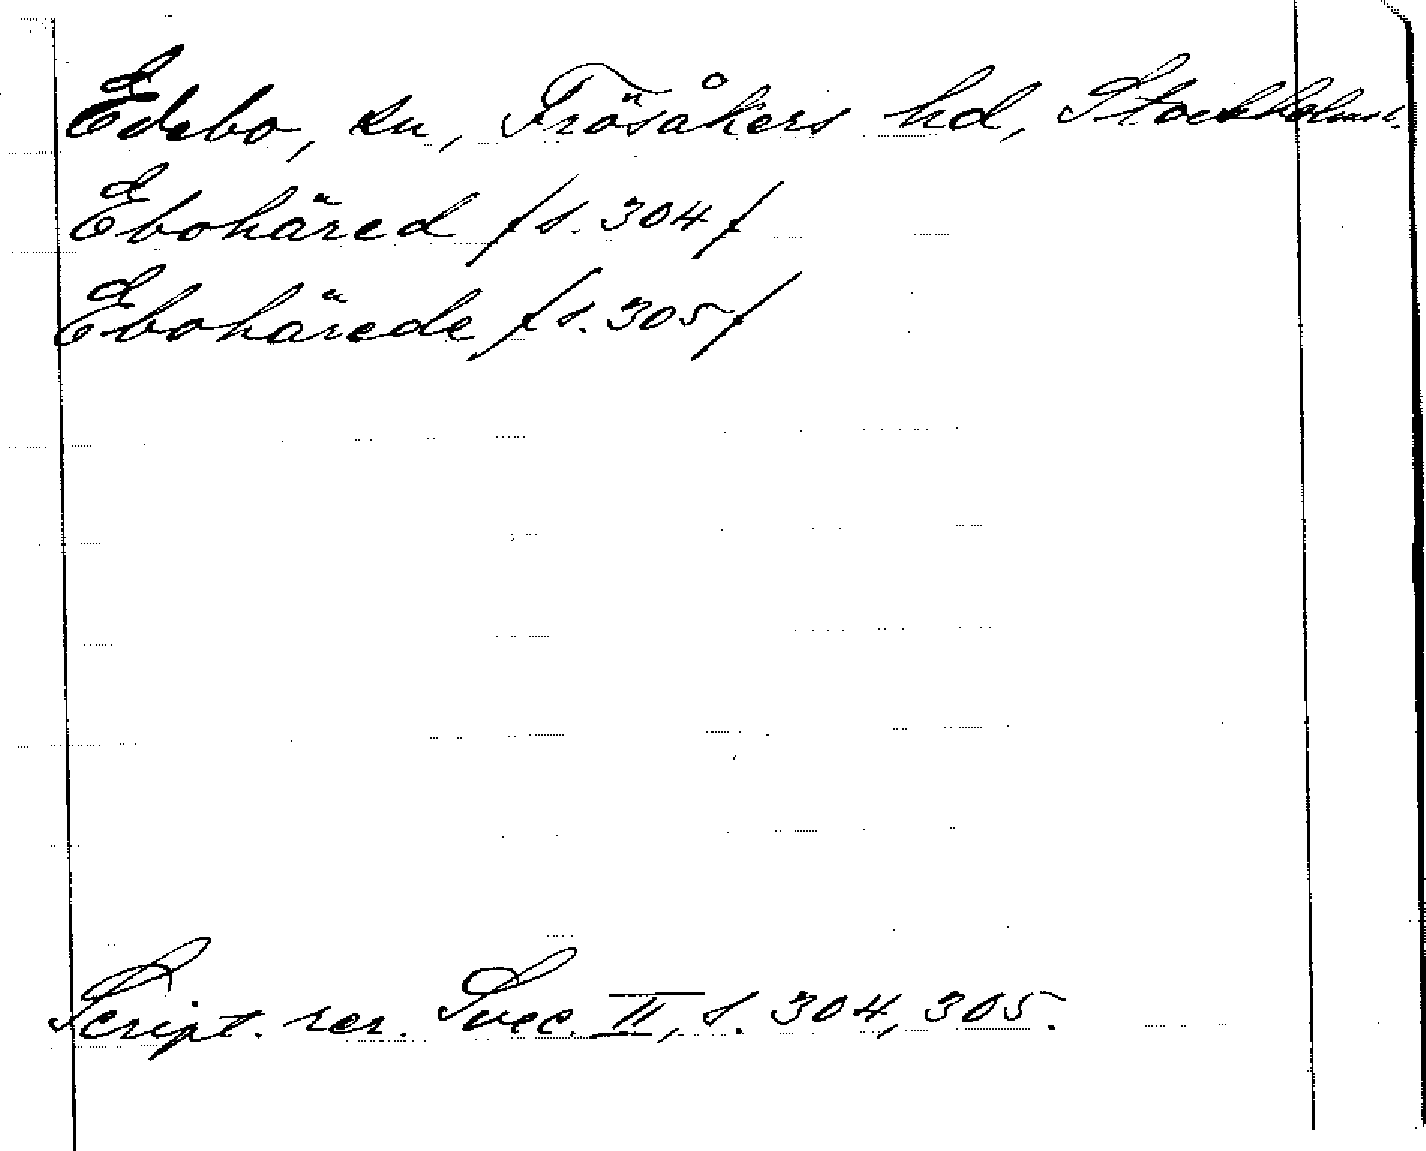 Edebo, sn, Frösåkers hd, Stockholms l.
Ebohäred /s. 304/
Ebohärede /s. 305/
Script. rer. Svec. II, s. 304, 305.